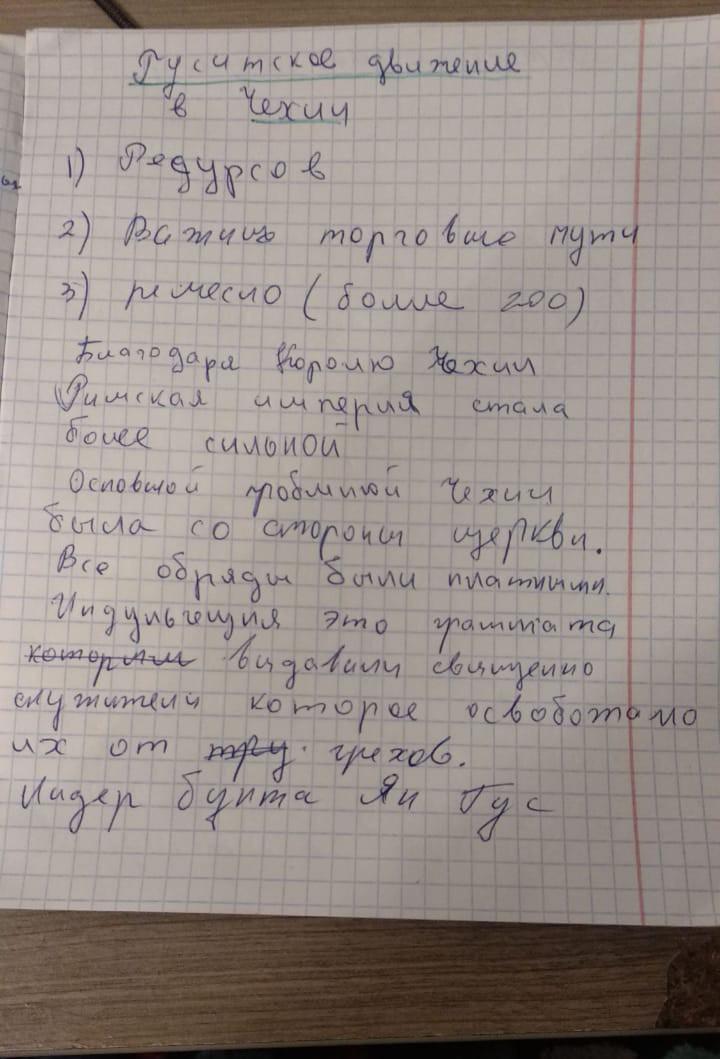 Гуситское движение
в Чехии
1) Редурсов
2) Важниь торговые пути
3) ремесло (более 200)
Благодаря Королю Чехии
Римская империя стала
более сильной
Основной проблмной Чехии
была со стороны церкви.
Все обряды были платными.
Индульгенция это граммата
которыи выдавали священно
служители которое освоботало
их от гру грехов.
Лидер бунта Ян Гус